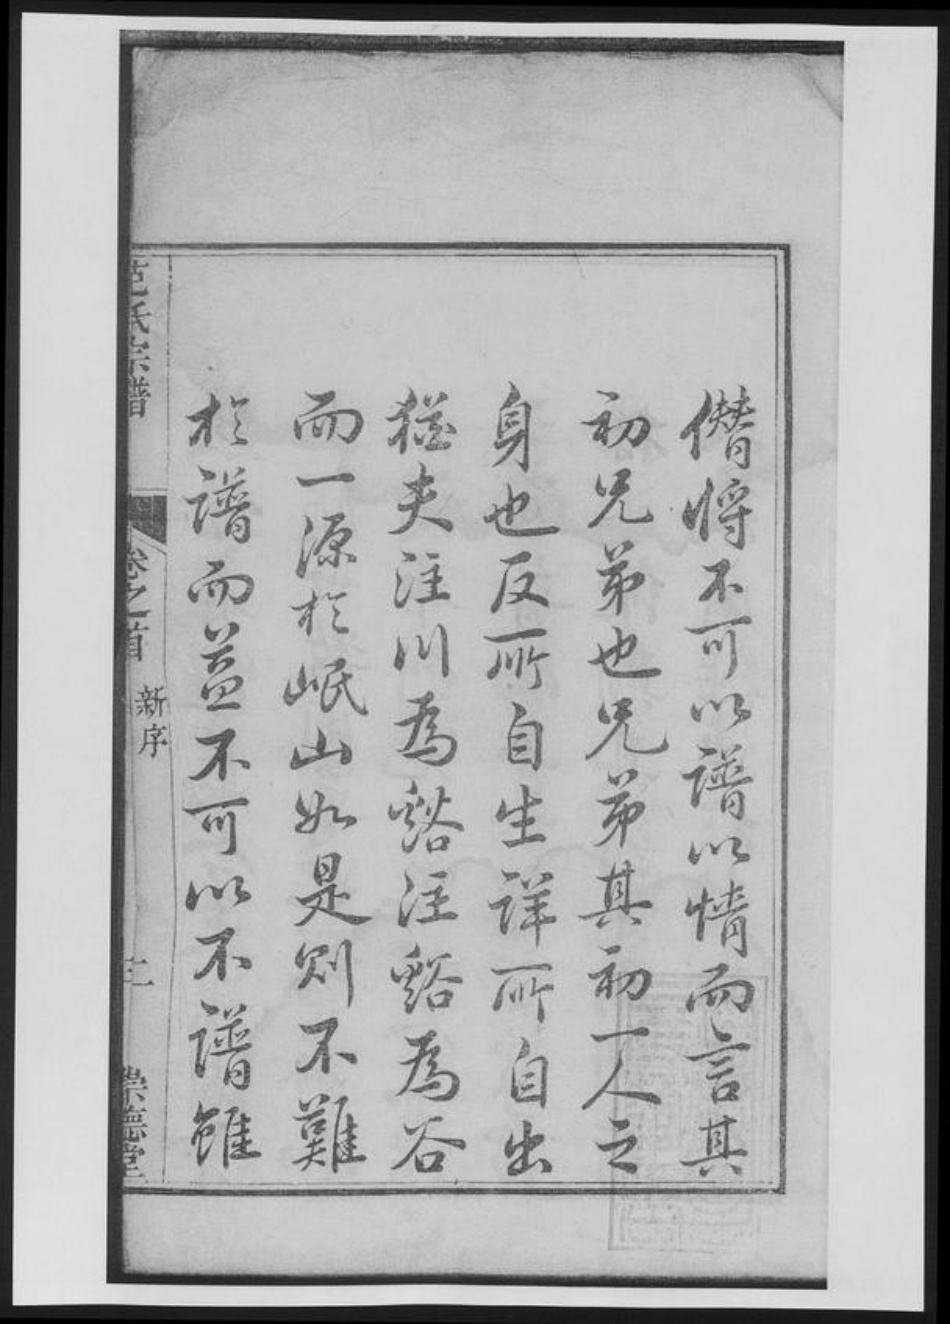 僣將不可以譜以情而言其
初兄弟也兄弟其初一人之
身也反所自生詳所自出
猶夫注川為谿注谿為谷
而一源於岷山如是則不難
於譜而益不可以不譜雖
范氏宗譜
卷之首
新序
二
崇德堂